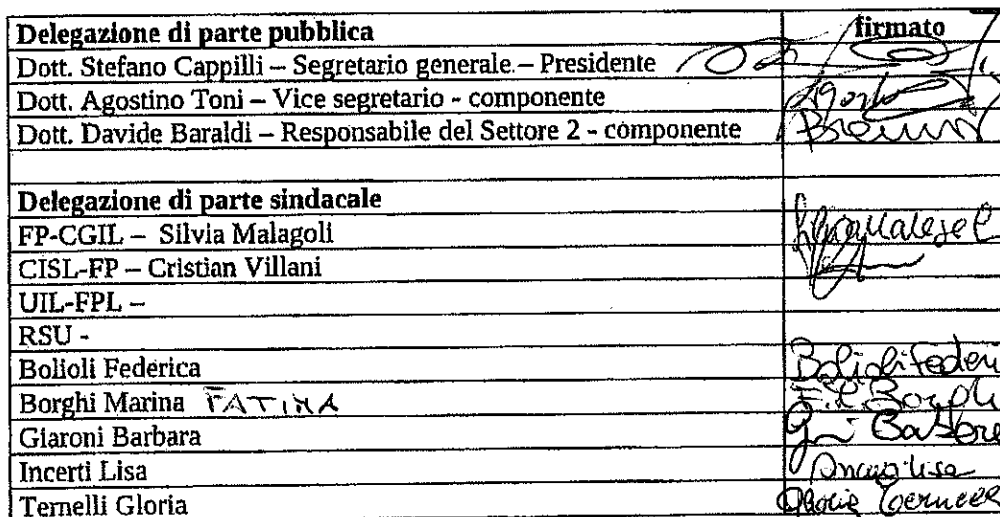 Delegazione di parte pubblica firmato
Dott. Stefano Cappilli – Segretario generale – Presidente
Dott. Agostino Toni – Vice segretario - componente
Dott. Davide Baraldi – Responsabile del Settore 2 - componente
Delegazione di parte sindacale
FP-CGIL – Silvia Malagoli
CISL-FP – Cristian Villani
UIL-FPL –
RSU -
Bolioli Federica Bolioli Federi
Borghi Marina FATIMA Borghi
Giaroni Barbara
Incerti Lisa Lisa
Temelli Gloria Gloria